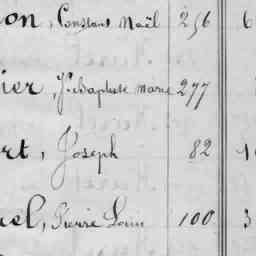 on, Constant Noël 256 6
ier, J. Baptiste Marie 277
rt, Joseph 82
el, Pierre Louis 100 3